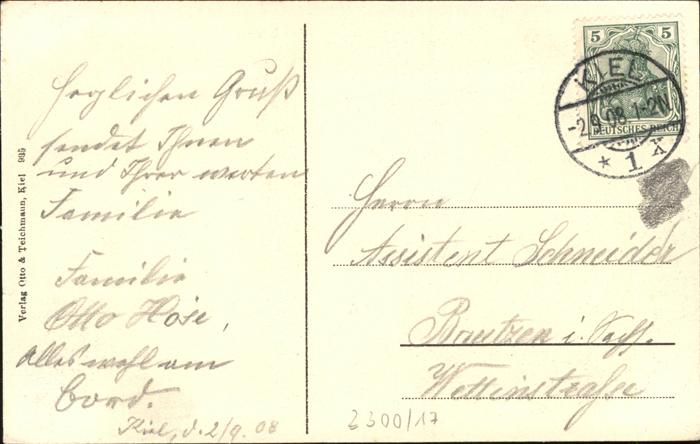 Herzlichen Gruß
sendet Ihnen
und Ihrer werten
Familie
Familie
Otto Hose,
Alles wohl am
Bord.
Kiel, d. 2/9. 08
Verlag Otto & Teichmann, Kiel 935
5 5
DEUTSCHES REICH
KIEL
-2.9.08.1-2N
* 1 X
Herrn
Assistent Schneider
Bautzen i. Sachs.
Wettinstraße
3300/17